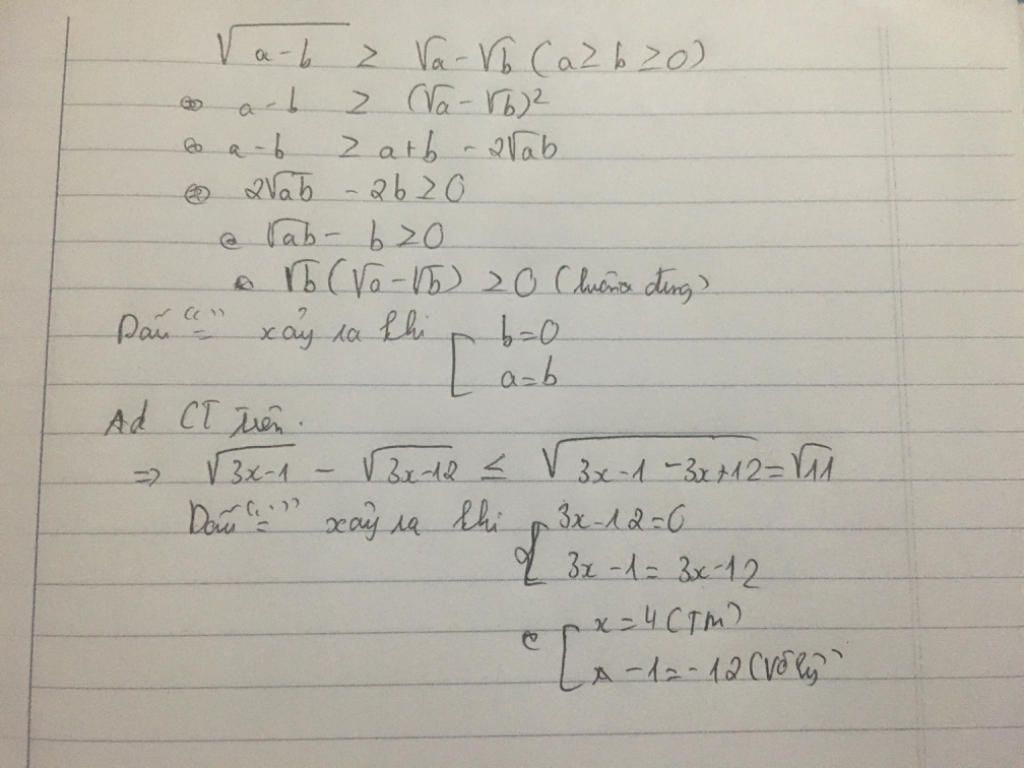 √(a-b) ≥ √a - √b (a ≥ b ≥ 0)
⇔ a - b ≥ (√a - √b)²
⇔ a - b ≥ a + b - 2√ab
⇔ 2√ab - 2b ≥ 0
⇔ √ab - b ≥ 0
⇔ √b(√a - √b) ≥ 0 (luôn đúng)
Dấu "=" xảy ra khi [ b = 0
a = b
Ad CT trên.
⇒ √(3x-1) - √(3x-12) ≤ √(3x-1-3x+12) = √11
Dấu "=" xảy ra khi [ 3x-12=0
3x-1 = 3x-12
⇔ [ x = 4 (TM)
-1 = -12 (Vô lý)